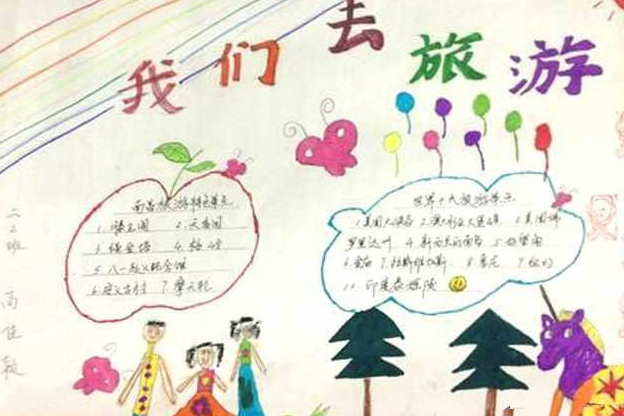 我们去旅游
南昌旅游特色景点
1. 滕王阁 2. 天香园
3. 绳金塔 4. 梅岭
5. 八一起义纪念馆
6. 安义古村 7. 摩天轮
世界十大旅游景点
1. 美国大峡谷 2. 澳大利亚大堡礁 3. 美国佛
罗里达州 4. 新西兰南岛 5. 好望角
6. 金庙 7. 拉斯维加斯 8. 悉尼 9. 纽约
10. 印度泰姬陵
二2班
高佳毅